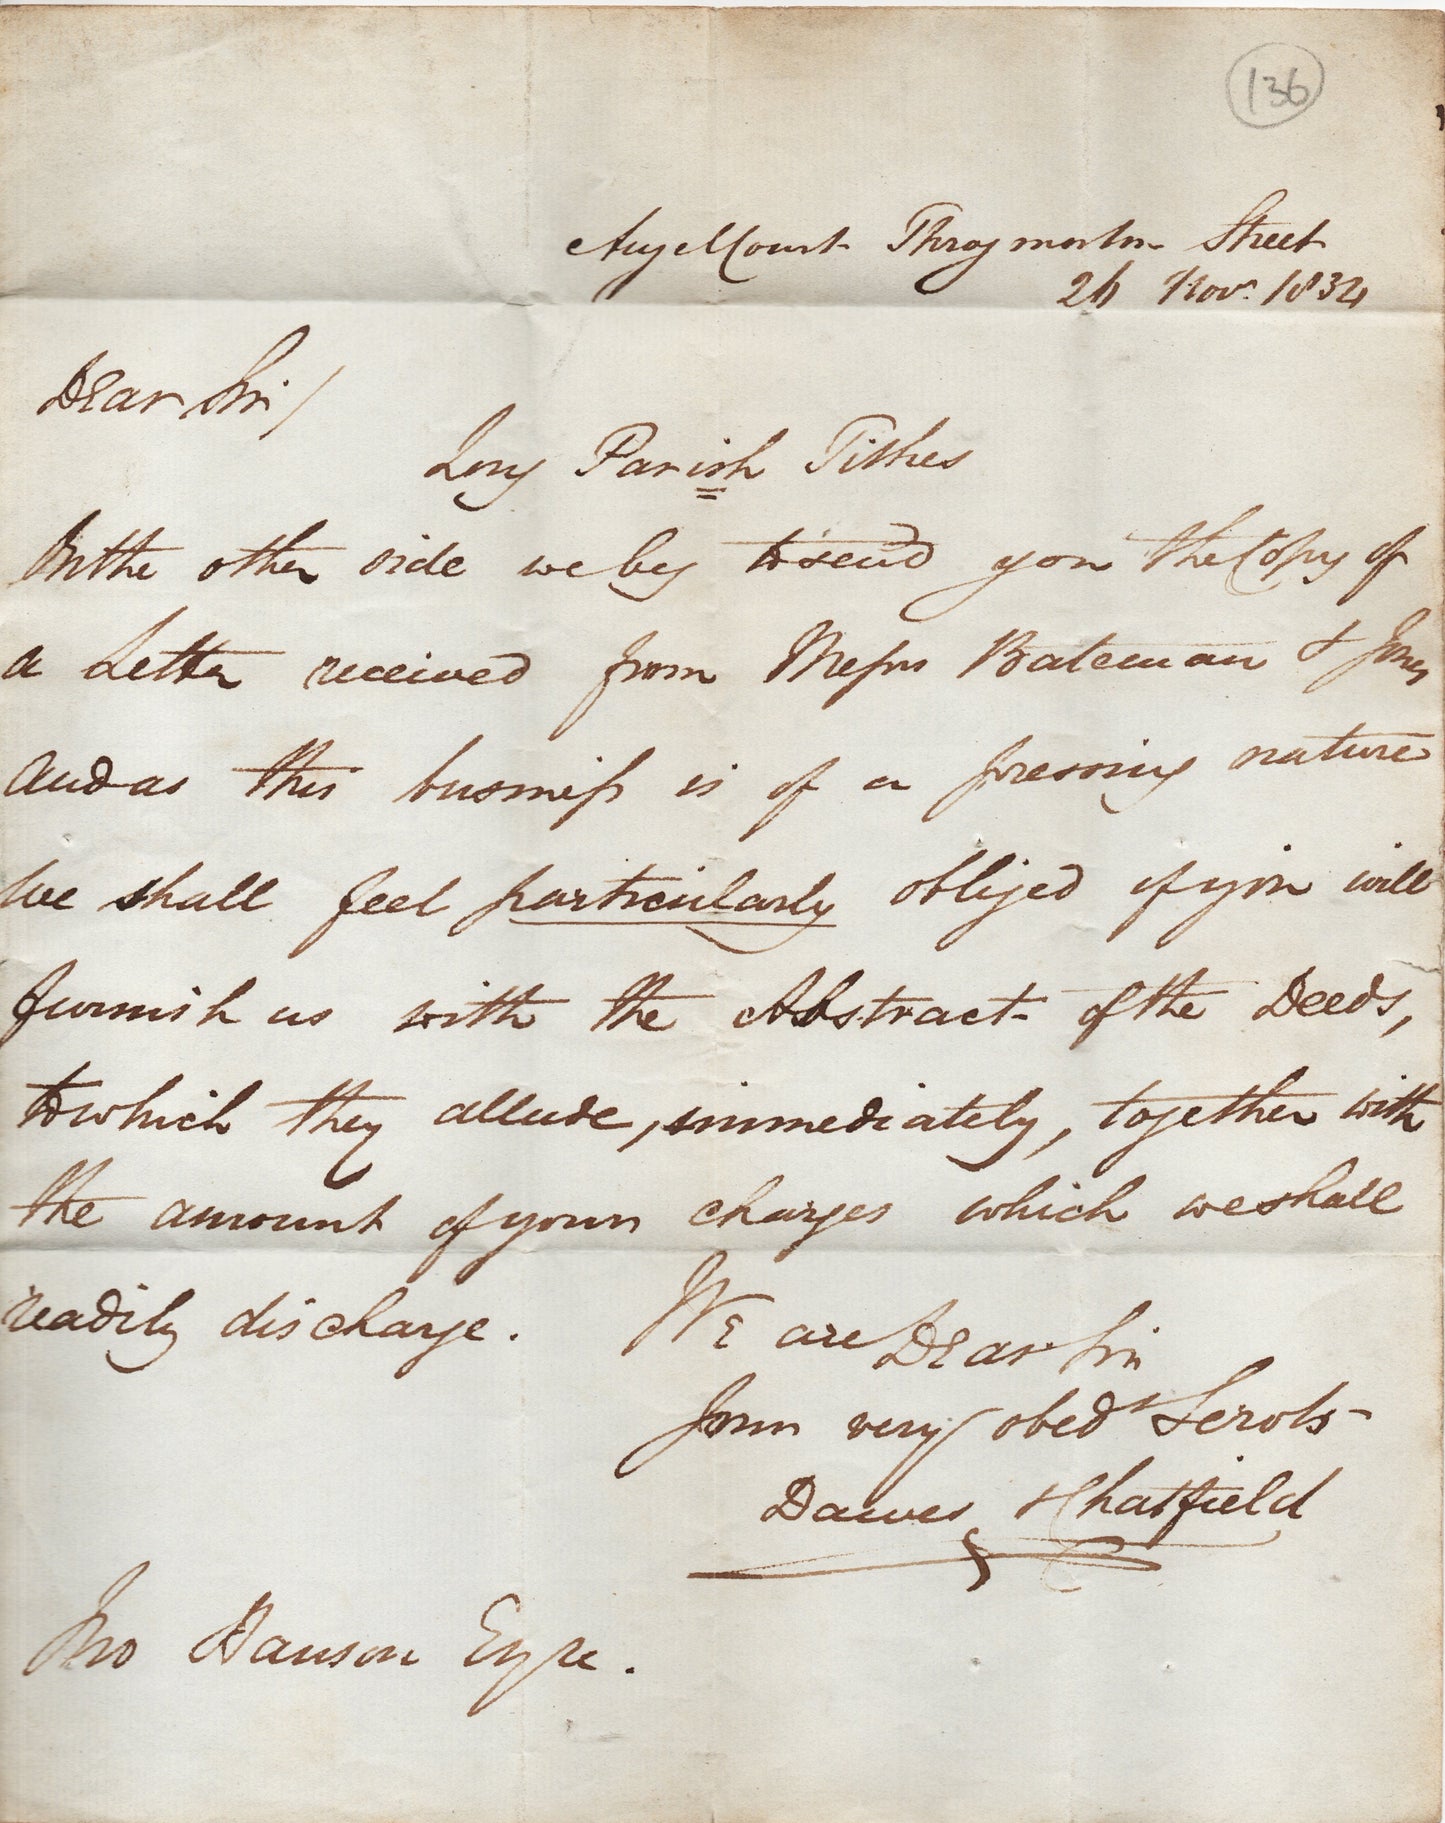 136
Angel Court Throgmorton Street
24 Novr. 1834
Dear Sir/
Long Parish Tithes
On the other side we beg to send you the Copy of
a Letter received from Messrs Bateman & Jones
and as this business is of a pressing nature
we shall feel particularly obliged if you will
furnish us with the Abstract of the Deeds,
to which they allude, immediately, together with
the amount of your charges which we shall
readily discharge.
We are Dear Sir
Your very obedt Servts
Dawes & Chatfield
Jno Hanson Esqre.